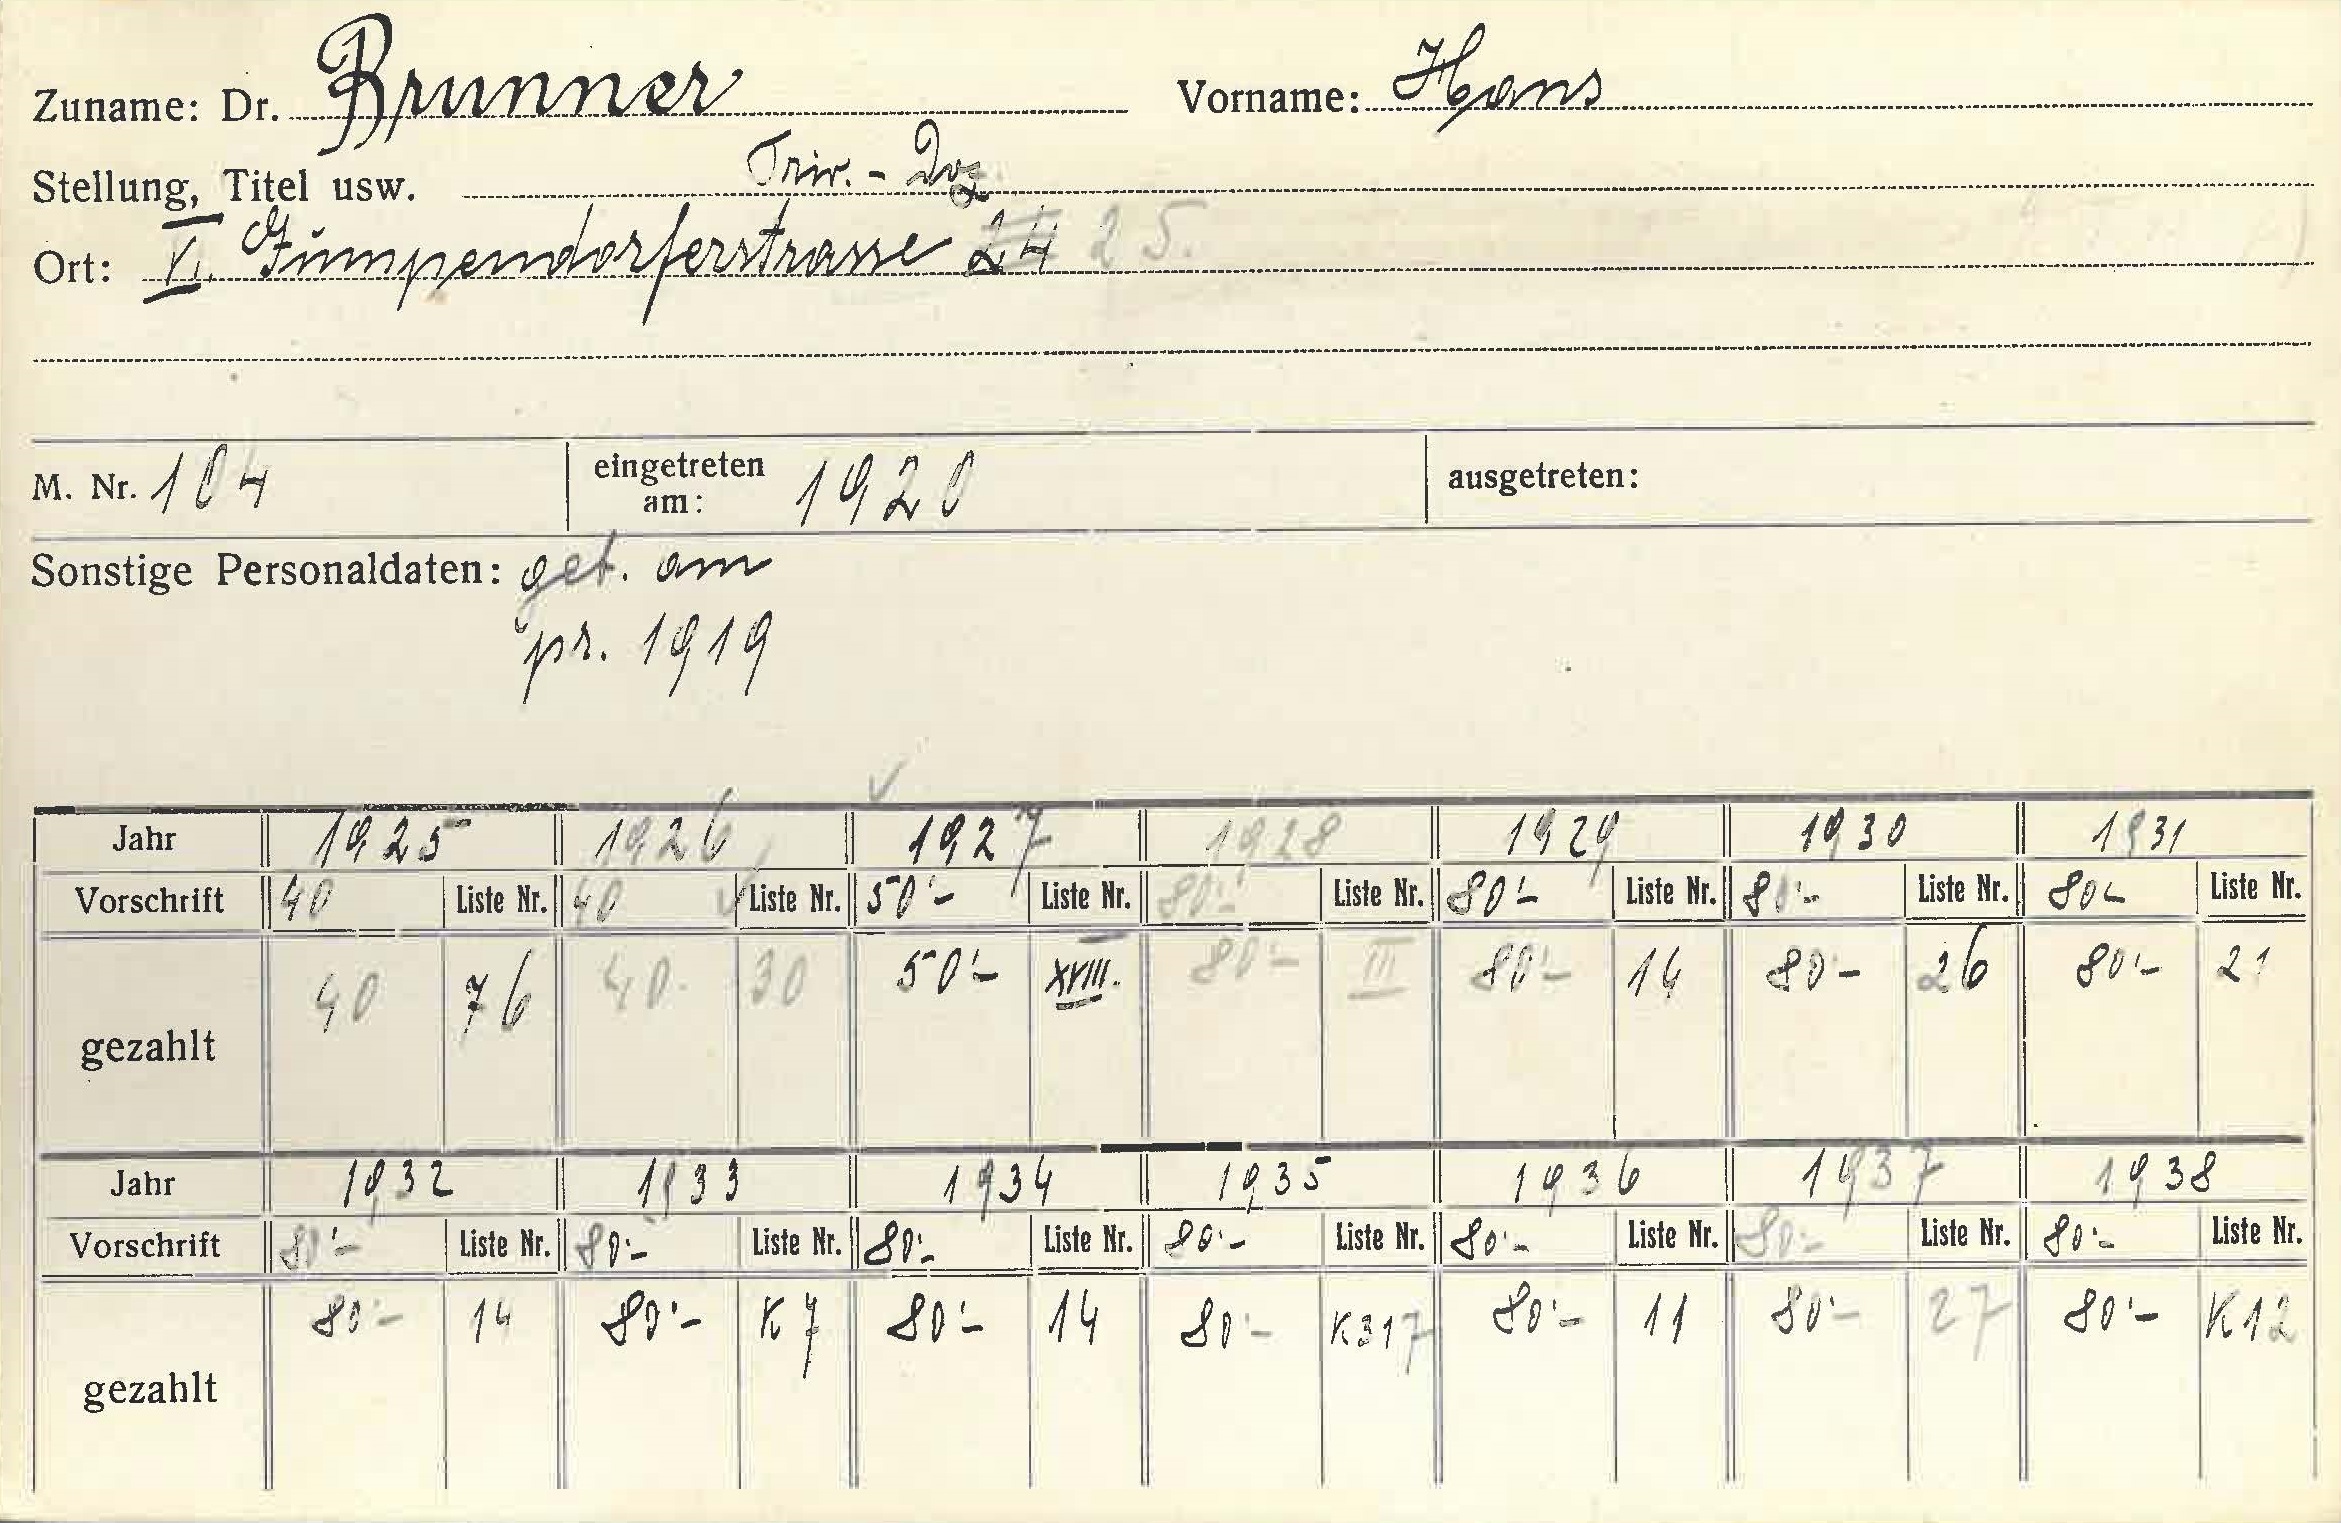 Zuname: Dr. Brunner Vorname: Hans
Stellung, Titel usw. Priv.-Doz.
Ort: VI. Gŭmpendorferstrasse 24 25.
M. Nr. 104 eingetreten am: 1920 ausgetreten:
Sonstige Personaldaten: geb. am
pr. 1919
Jahr 1925 1926 1927 1928 1929 1930 1931
Vorschrift 40 Liste Nr. 40 Liste Nr. 50'- Liste Nr. 80'- Liste Nr. 80'- Liste Nr. 80'- Liste Nr. 80'- Liste Nr.
gezahlt 40 76 40.- 30 50'- XVIII. 80'- III 80'- 14 80'- 26 80'- 21
Jahr 1932 1933 1934 1935 1936 1937 1938
Vorschrift 80'- Liste Nr. 80'- Liste Nr. 80'- Liste Nr. 80'- Liste Nr. 80'- Liste Nr. 80'- Liste Nr. 80'- Liste Nr.
gezahlt 80'- 14 80'- K 7 80'- 14 80'- K317 80'- 11 80'- 27 80'- K12